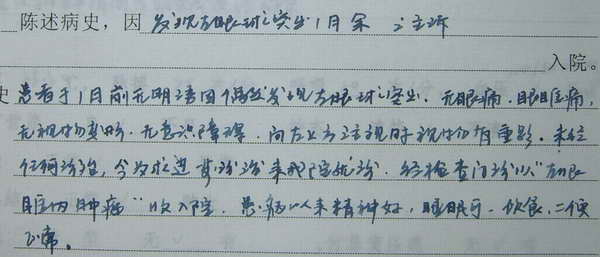 陈述病史，因 发现左眼球突出1月余 之主诉
入院。
史 患者于1月前无明诱因偶然发现左眼球突出，无眼痛，眼眶痛，
无视物变形，无意识障碍，向左上方注视时视物有重影。未经
任何诊治，今为求进一步诊治来我院就诊。经检查门诊以"左眼
眶内肿病"收入院。患病以来精神好，睡眠可，饮食，二便
正常。